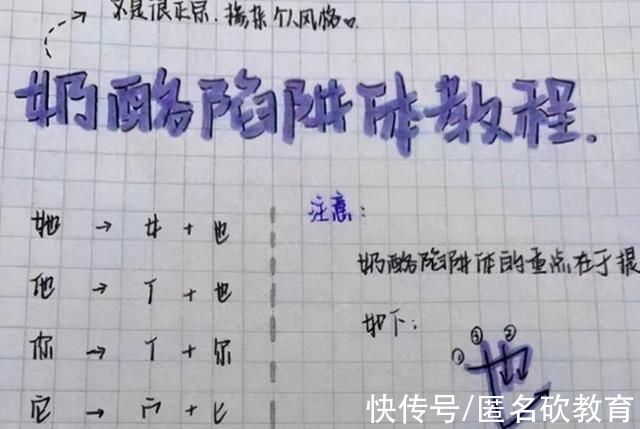 不是很正宗.掺杂个人风格。
奶酪陷阱体教程.
她 → 女 + 也
他 → 亻 + 也
你 → 亻 + 尔
它 → 宀 + 匕
注意:
奶酪陷阱体的重点在于提
如下:
① ③ ② 也
快传号/匿名砍教育